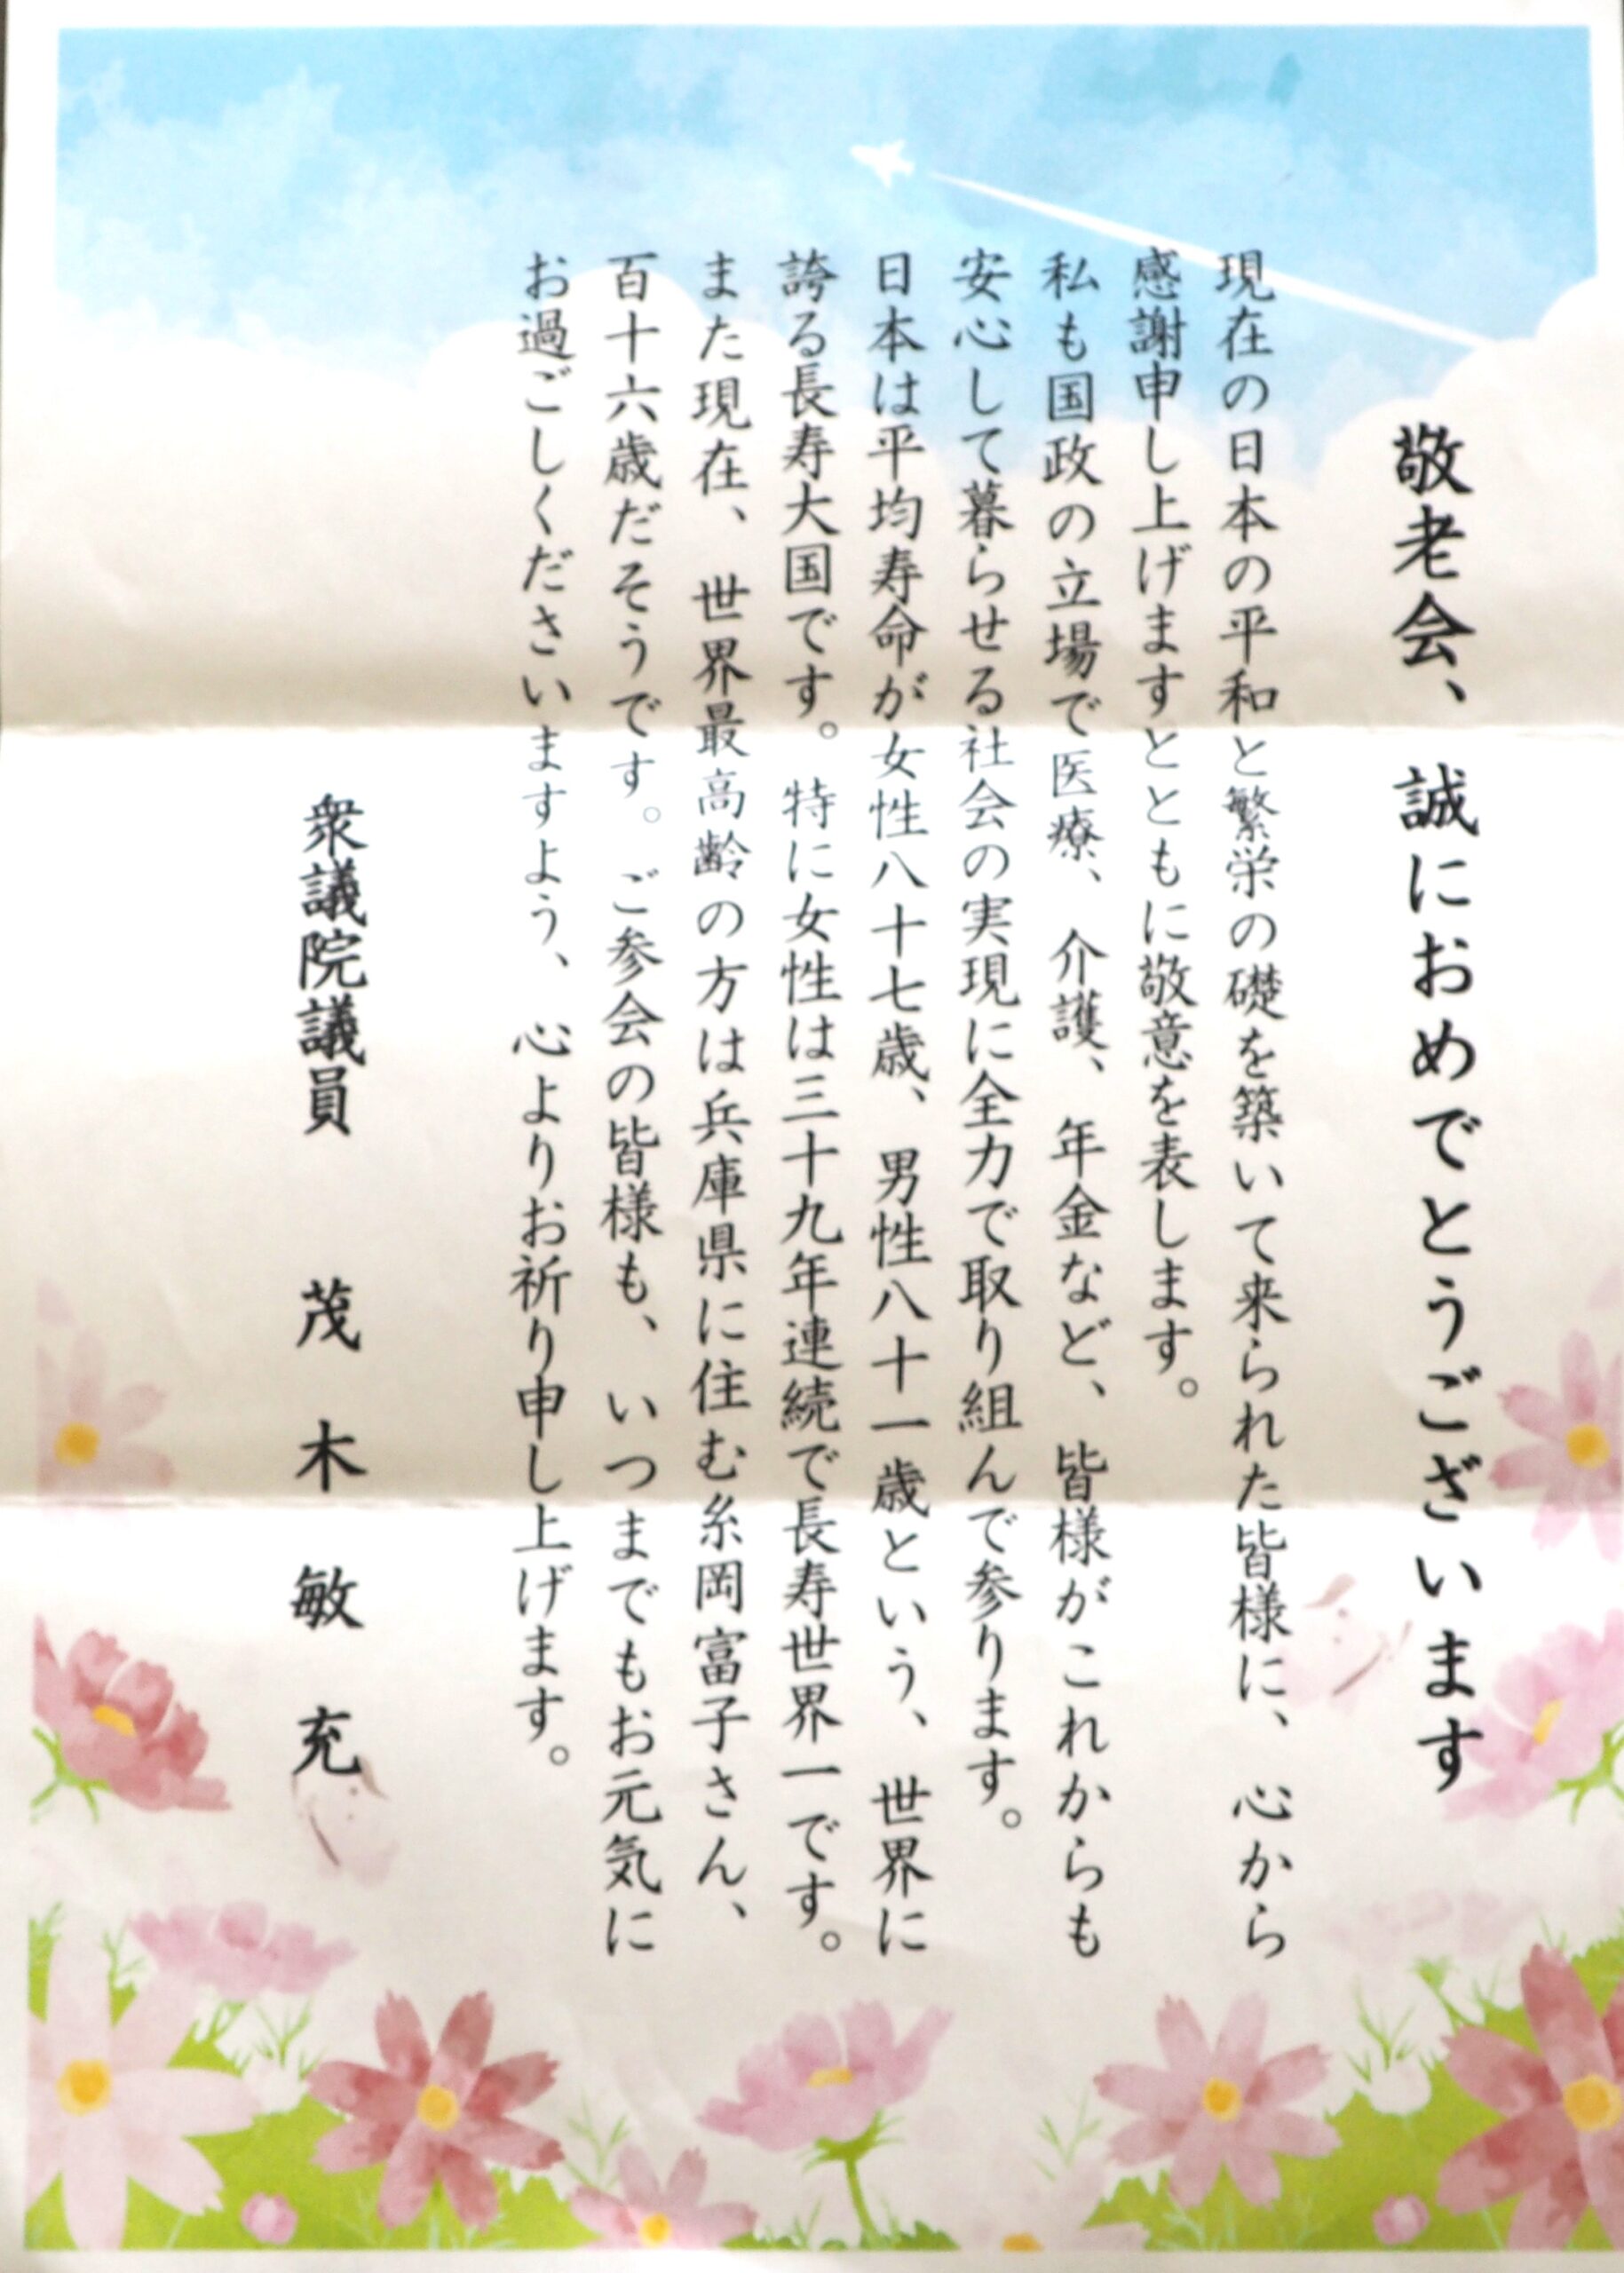 敬老会、誠におめでとうございます
現在の日本の平和と繁栄の礎を築いて来られた皆様に、心から
感謝申し上げますとともに敬意を表します。
私も国政の立場で医療、介護、年金など、皆様がこれからも
安心して暮らせる社会の実現に全力で取り組んで参ります。
日本は平均寿命が女性八十七歳、男性八十一歳という、世界に
誇る長寿大国です。特に女性は三十九年連続で長寿世界一です。
また現在、世界最高齢の方は兵庫県に住む糸岡富子さん、
百十六歳だそうです。ご参会の皆様も、いつまでもお元気に
お過ごしくださいますよう、心よりお祈り申し上げます。
衆議院議員 茂木敏充